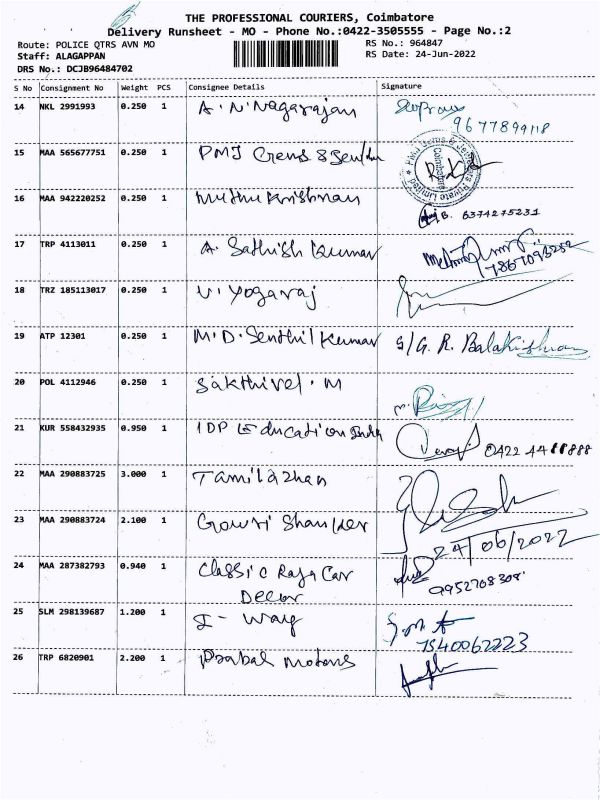 THE PROFESSIONAL COURIERS, Coimbatore
Delivery Runsheet - MO - Phone No.:0422-3505555 - Page No.:2
Route: POLICE QTRS AVN MO RS No.: 964847
Staff: ALAGAPPAN RS Date: 24-Jun-2022
DRS No.: DCJB96484702
S No Consignment No Weight PCS Consignee Details Signature
14 NKL 2991993 0.250 1 A. N. Nagarajan
9677899118
15 MAA 565677751 0.250 1 PMJ Gems &
16 MAA 942220252 0.250 1 Muthu Krishnan
B. 6374275231
17 TRP 4113011 0.250 1 A. Sathish Kumar
7867093252
18 TRZ 185113017 0.250 1 V. Yogaraj
19 ATP 12301 0.250 1 M. D. Senthil Kumar S/G. R. Balakishnan
20 POL 4112946 0.250 1 Sakthivel. M
21 KUR 558432935 0.950 1 IDP Education India 0422 4411888
22 MAA 290883725 3.000 1 Tamilazhan
23 MAA 290883724 2.100 1 Gowri Shanker
24/06/2022
24 MAA 287382793 0.940 1 Classic Raja Car
Decor
9952708308
25 SLM 298139687 1.200 1 I - Way
7540062223
26 TRP 6820901 2.200 1 Prabal Motors